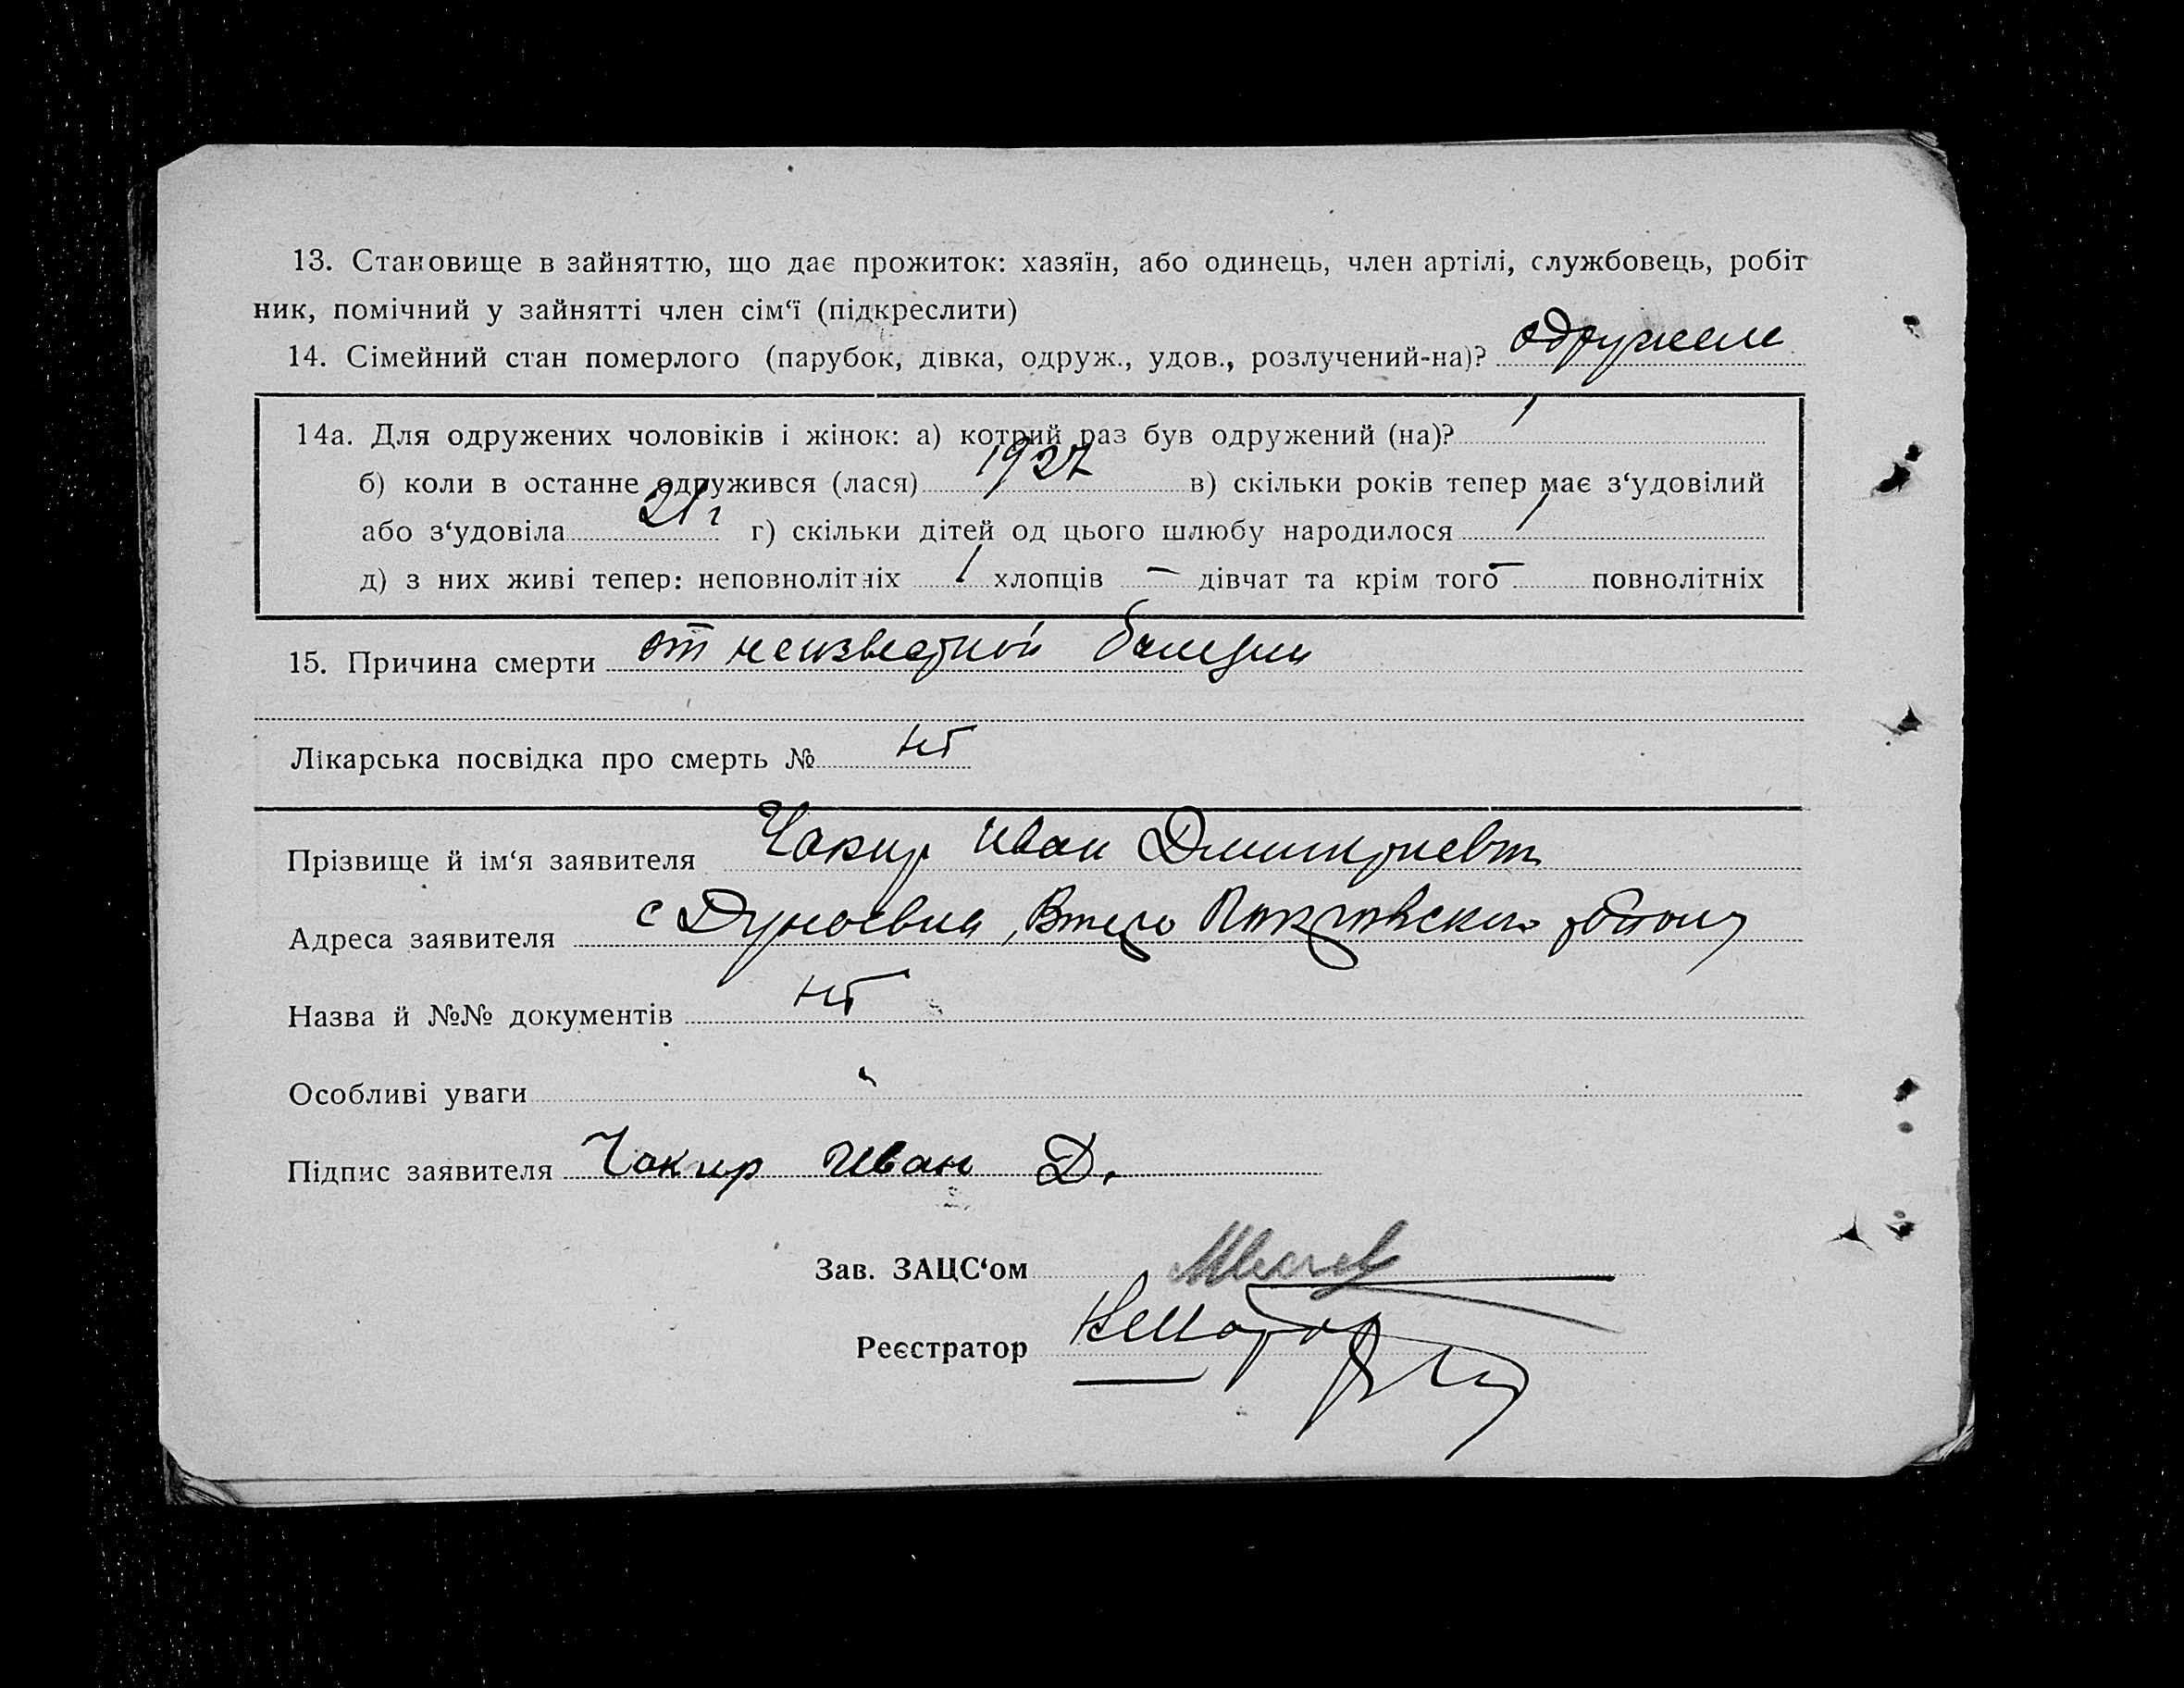 13. Становище в зайняттю, що дає прожиток: хазяїн, або одинець, член артілі, службовець, робіт
ник, помічний у зайнятті член сім‘ї (підкреслити)
14. Сімейний стан померлого (парубок, дівка, одруж., удов., розлучений-на)?
14а. Для одружених чоловіків і жінок: а) котрий раз був одружений (на)? 1
б) коли в останне одружився (лася) 1927 в) скільки років тепер має з‘удовілий
або з‘удовіла 21 г г) скільки дітей од цього шлюбу народилося 1
д) з них живі тепер: неповнолітніх 1 хлопців – дівчат та крім того – повнолітніх
15. Причина смерти от неизвестной болезни
Лікарська посвідка про смерть № нт
Прізвище й ім‘я заявителя Чакир Иван Дмитриевич
Адреса заявителя с Дунаевка,
Назва й №№ документів нт
Особливі уваги "
Підпис заявителя Чакир Иван Д.
Зав. ЗАЦС‘ом
Реєстратор